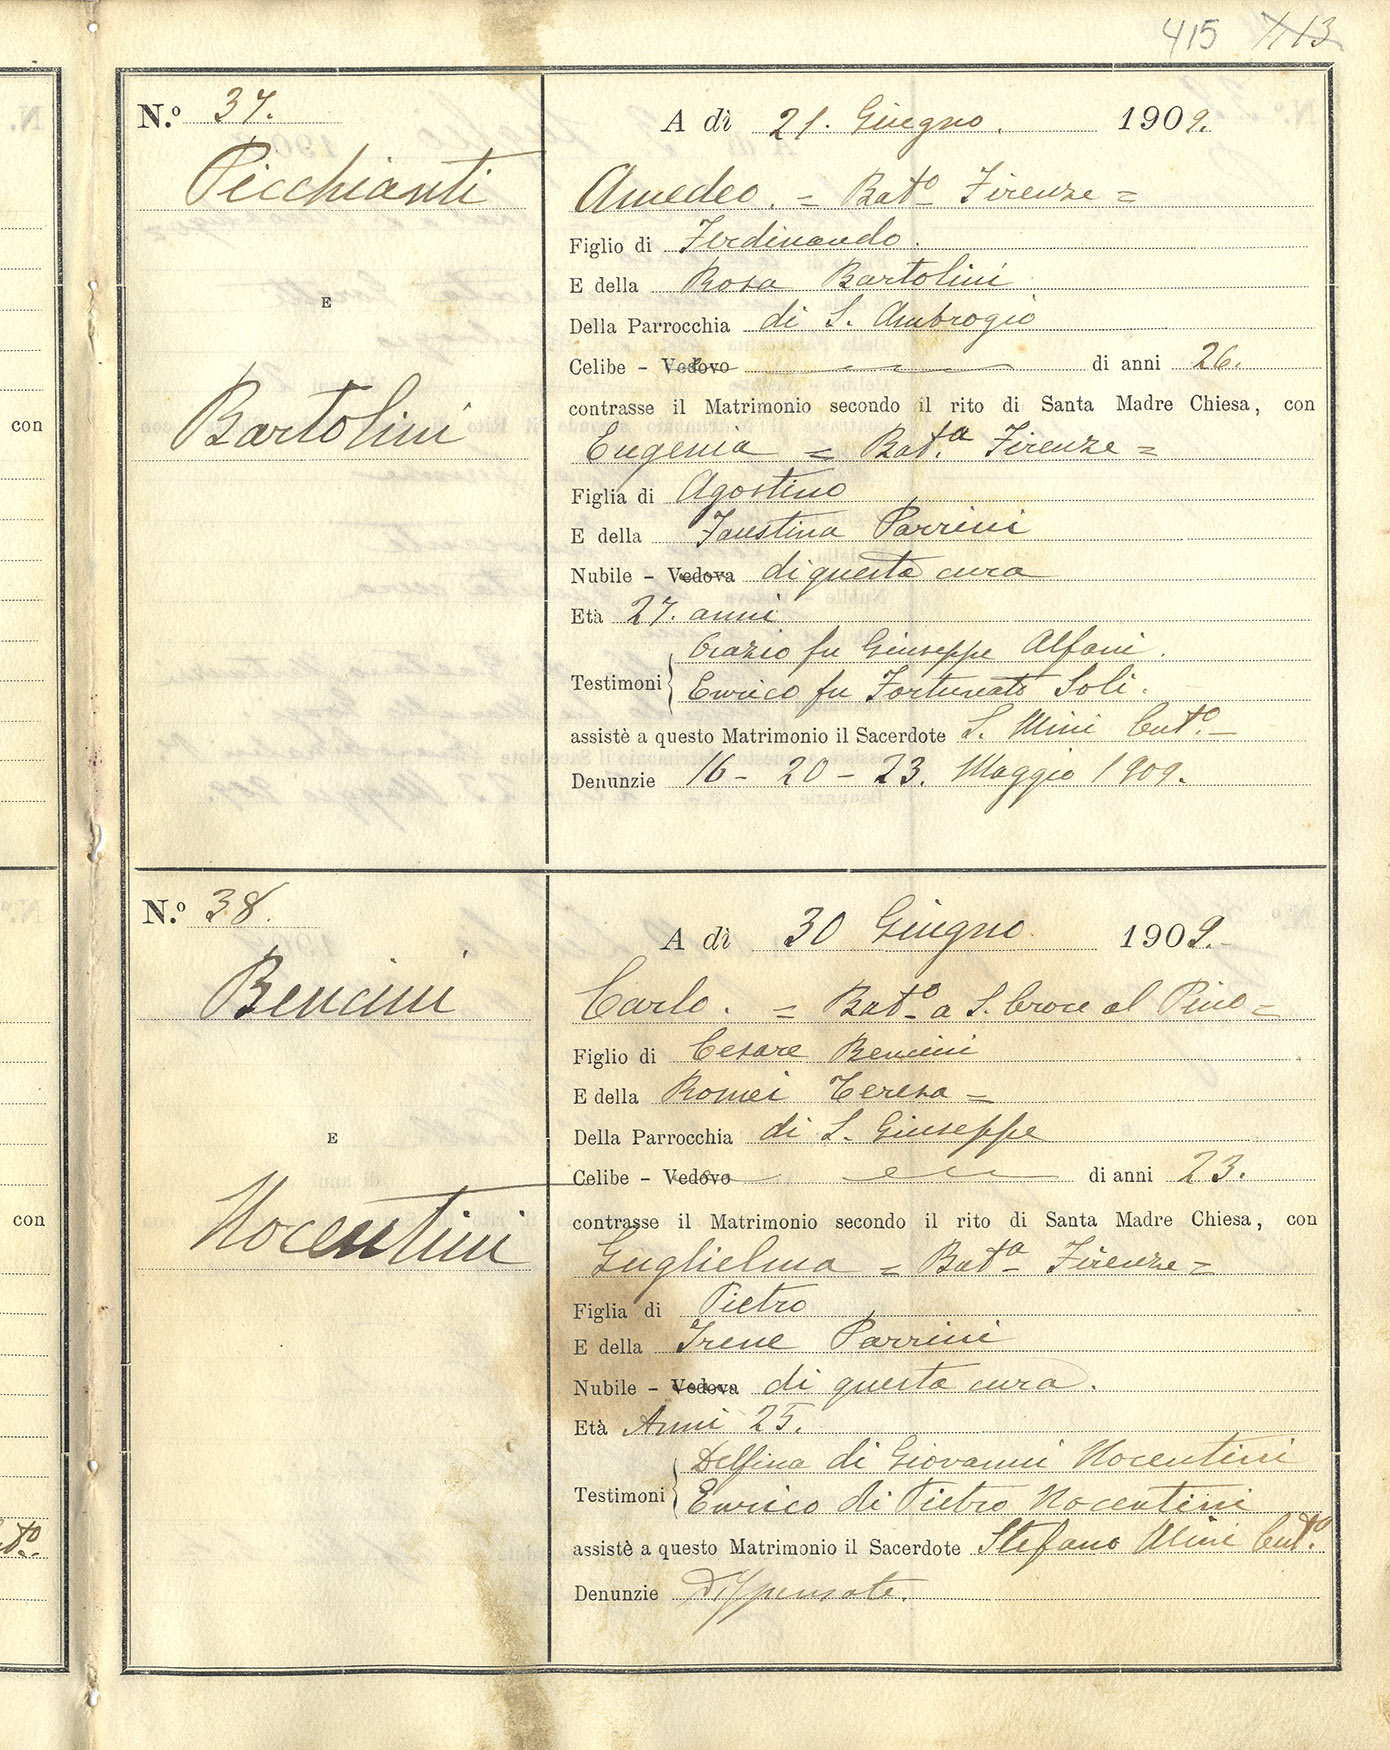 415 113
N.º 37.
Picchianti
E
Bartolini
A dì 21. Giugno. 1909.
Amedeo. = Batº Firenze =
Figlio di Ferdinando.
E della Rosa Bartolini
Della Parrocchia di S. Ambrogio
Celibe - Vedovo di anni 26.
contrasse il Matrimonio secondo il rito di Santa Madre Chiesa, con
Eugenia = Bat.ª Firenze =
Figlia di Agostino
E della Faustina Parrini
Nubile - Vedova di questa cura
Età 27. anni
Testimoni Orazio fu Giuseppe Alfani.
Enrico fu Fortunato Soli.
assistè a questo Matrimonio il Sacerdote S. Mini Cutº.
Denunzie 16 - 20 - 23. Maggio 1909.
N.º 38.
Bencini
E
Nocentini
A dì 30 Giugno 1909.
Carlo. = Batº a S. Croce al Pino =
Figlio di Cesare Bencini
E della Romei Teresa =
Della Parrocchia di S. Giuseppe
Celibe - Vedovo di anni 23.
contrasse il Matrimonio secondo il rito di Santa Madre Chiesa, con
Guglielma = Batª Firenze =
Figlia di Pietro
E della Irene Parrini
Nubile - Vedova di questa cura.
Età Anni 25.
Testimoni Delfina di Giovanni Nocentini
Enrico di Pietro Nocentini
assistè a questo Matrimonio il Sacerdote Stefano Mini Cutº.
Denunzie Dispensate.
con
con